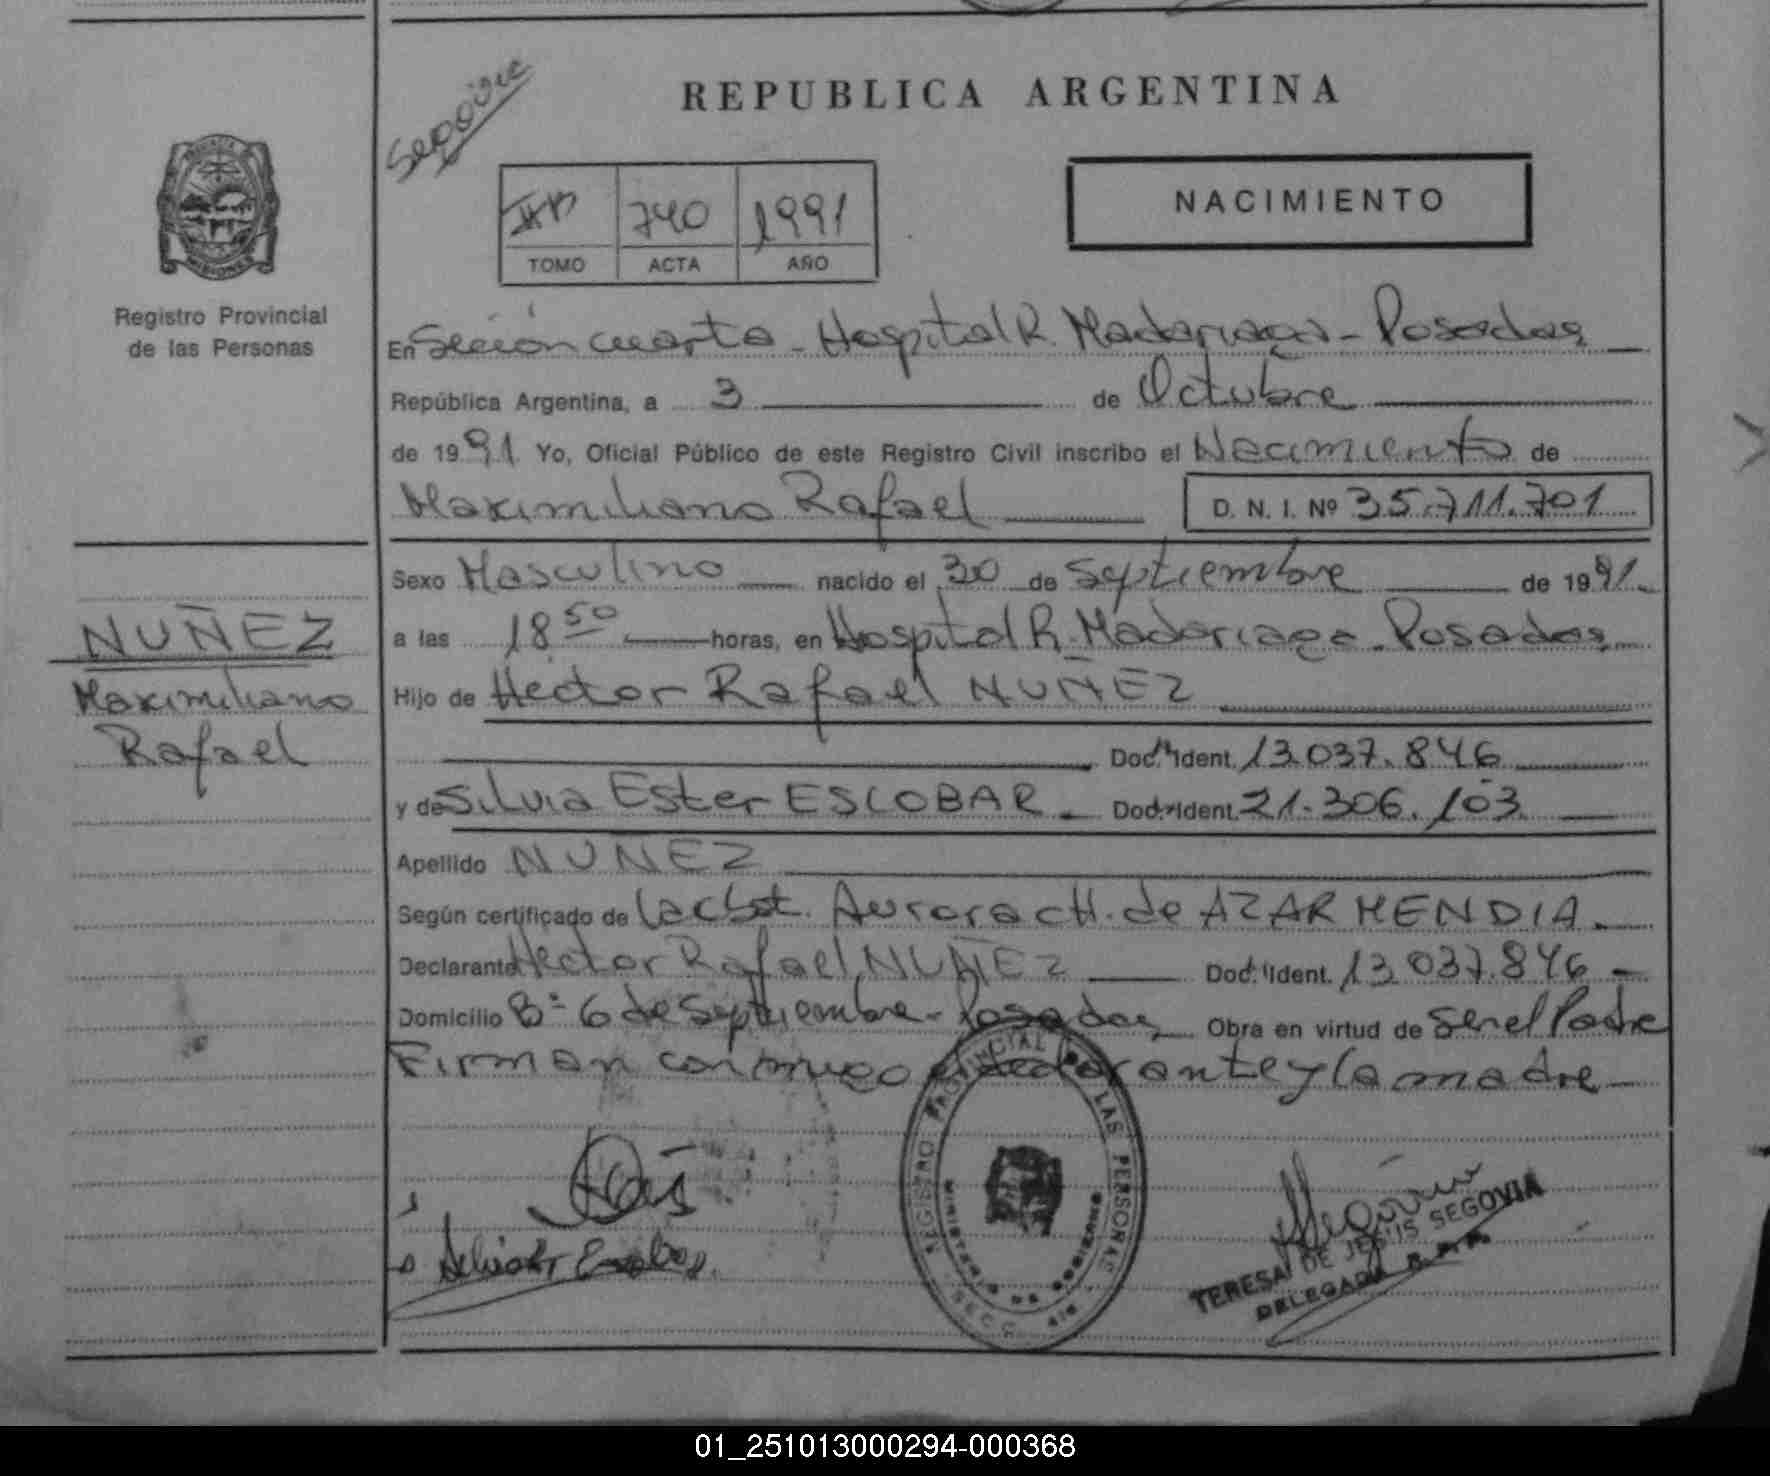 REPUBLICA ARGENTINA
740 1991
TOMO ACTA AÑO
NACIMIENTO
MISIONES
Registro Provincial
de las Personas
En Sección cuarta - Hospital R. Madariaga - Posadas
República Argentina, a 3 de Octubre
de 1991 Yo, Oficial Público de este Registro Civil inscribo el Nacimiento de
Maximiliano Rafael D. N. I. Nº 35.711.701
Sexo Masculino nacido el 30 de Septiembre de 1991
a las 18 50 horas, en Hospital R. Madariaga - Posadas
NUÑEZ
Maximiliano
Rafael
Hijo de Hector Rafael NUÑEZ
Doc. Ident. 13.037.846
y de Silvia Ester ESCOBAR. Doc. Ident. 21.306.103
Apellido NUÑEZ
Según certificado de Aurora CH. de AZARMENDIA
Declarante Hector Rafael NUÑEZ Doc. Ident. 13.037.846
Domicilio Bº 6 de Septiembre - Posadas Obra en virtud de Ser el Padre
Firman conmigo el declarante y la madre
REGISTRO PROVINCIAL DE LAS PERSONAS
MINISTERIO DE GOBIERNO
TERESA DE JESUS SEGOVIA
DELEGADA R.P.P.
01_251013000294-000368